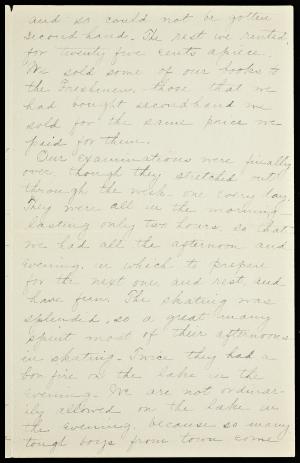 and so could not be gotten
second hand. The rest we rented
for twenty five cents apiece.
We sold some of our books to
the Freshmen, those that we
had bought secondhand we
sold for the same price we
paid for them.
Our examinations were finally
over though they stretched out
through the week - one every day.
They were all in the morning -
lasting only two hours, so that
we had all the afternoon and
evening, in which to prepare
for the next one and rest, and
have fun. The skating was
splendid, so a great many
spent most of their afternoons
in skating. Twice they had a
bonfire on the lake in the
evening. We are not ordinar-
ily allowed on the lake in
the evening, because so many
tough boys from town come